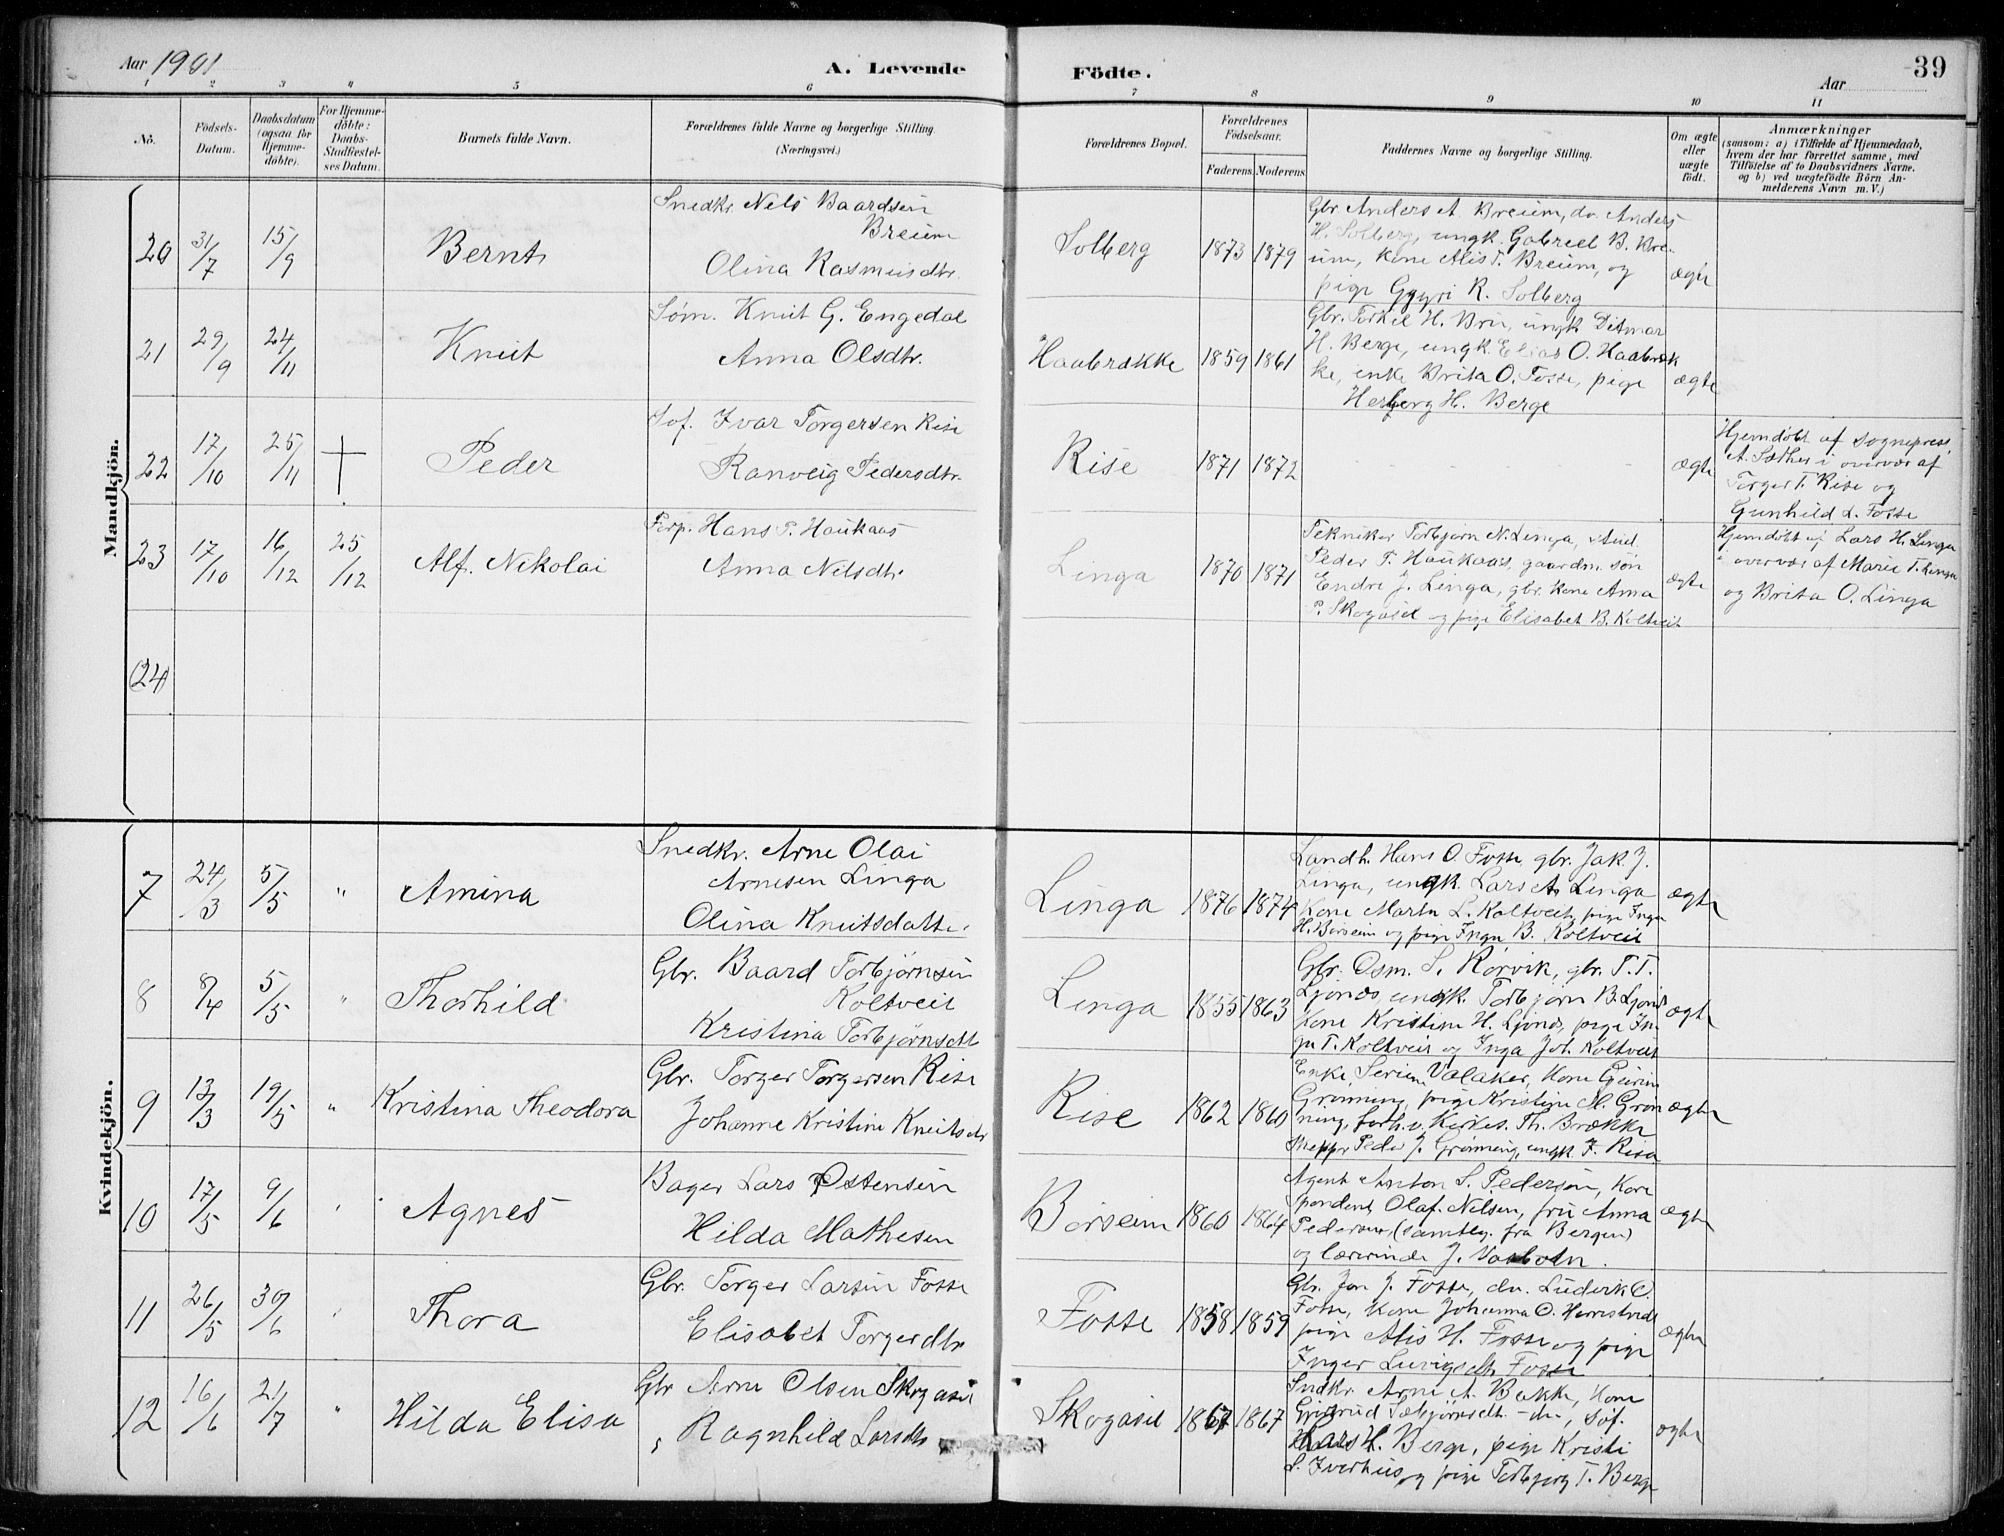 Aar 1901
A. Levende
Födte.
Aar
39
1 2 3 4 5 6 7 8 9 10 11
No.
Födsels-
Datum.
Daabsdatum
(ogsaa for
Hjemme-
döbte).
For Hjemme-
döbte:
Daabs-
Stadfæstel-
ses Datum.
Barnets fulde Navn.
Forældrenes fulde Navne og borgerlige Stilling.
(Næringsvei.)
Forældrenes Bopæl.
Forældrenes
Födselsaar.
Faderens Moderens
Faddernes Navne og borgerlige Stilling.
Om ægte
eller
uægte
födt.
Anmærkninger
(saasom: a) i Tilfælde af Hjemmedaab,
hvem der har forrettet samme, med
Tilföielse af to Daabsvidners Navne.
og b) ved uægtefödte Börn An-
melderens Navn m. V.)
Mandkjön.
20
31/7
15/9
Bernt
Snedkr. Nels Baardsen
Breium
Olina Rasmusdtr.
Solberg
1873 1879
Gbr. Anders A. Breium, do. Anders
H. Solberg, ungk. Gabriel B. Bre-
ium, Kone Alis T. Breium, og
pige Guri R. Solberg
ægte
21
29/9
24/11
Knut
Søm. Knut G. Engedal
Anna Olsdtr.
Haabrække
1859 1861
Gbr. Torkel H. Bru, ungk Ditmar
H. Berge, ungk. Elias O. Haabræk
ke, enke Brita O. Fosse, pige
Herborg H. Berge
ægte
22
17/10
25/11
†
Peder
Sof. Ivar Torgersen Rise
Ranveig Pedersdtr.
Rise
1871 1872
ægte
Hjemdöbt af Sognepræst
A. Sæther i overvær af
Torger T. Rise og
Gunhild L. Fosse
23
17/10
16/12
25/12
Alf. Nikolai
Forp. Hans P. Haukaas
Anna Nilsdtr.
Linga
1870 1871
Tekniker Torbjørn N. Linga, stud.
Peder T. Haukaas, gaardm. søn
Endre J. Linga, gbr. kone Anna
P. Skogasel og pige Elisabet B. Koltveit
ægte
Hjemdöbt af Lars H. Linga
i overvær af Marie T. Linga
og Brita O. Linga
(24)
Kvindekjön.
7
24/3
5/5
"
Amina
Snedkr. Arne Olai
Arnesen Linga
Olina Knutsdatter
Linga
1876 1874
Landh. Hans O. Fosse, gbr. Jak J.
Linga, ungk. Lars A. Linga
Kone Marta L. Koltveit, pige Inga
H. Børseim og pige Inga B. Koltveit
ægte
8
8/4
5/5
"
Thorhild
Gbr. Baard Torbjørnsen
Koltveit
Kristina Torbjørnsdtr
Linga
1855 1863
Gbr. Osm. S. Rørvik, gbr. T. T.
Ljonds, ungk. Torbjørn B. Ljonds
Kone Kristine H. Ljonds, pige In-
ga T. Koltveit og Inga Joh. Koltveit
ægte
9
13/3
19/5
"
Kristina Theodora
Gbr. Torger Torgersen Rise
Johanne Kristine Knutsdtr
Rise
1862 1860
Enke Serine Valaker, Kone Guri
Grønning, pige Kristine M. Grøn
ning, forh.v. Kirkes. Th. Brække
Skeppr Peder J. Grønning, ungk. I. Rise
ægte
10
17/5
9/6
"
Agnes
Bager Lars Østensen
Hilda Mathesen
Børseim
1860 1864
Agent Anton S. Pedersen, Kore
pondent Olaf. Nilsen, fru Anna
Pedersen, (samtlg. fra Bergen)
og Lærerinde J. Vasbotn.
ægte
11
26/5
30/6
"
Thora
Gbr. Torger Larsen Fosse
Elisabet Torgerdtr
Fosse
1858 1859
Gbr. Jon J. Fosse, do. Ludvik O.
Fosse, Kone Johanna O.
pige Alis H. Fosse og pige
Inger Luvigsdtr Fosse
ægte
12
16/6
21/7
"
Hilda Elisa
Gbr Arne Olsen Skogasel
Ragnhild Larsdtr
Skogasel
1867 1867
Sndkr. Arne A. Bakke, Kone
Gjertrud Sæbjørnsdtr. do, Søf.
Lars H. Berge, pige Kristi
S. Iverhus og pige Torbjørg T. Berge
ægte